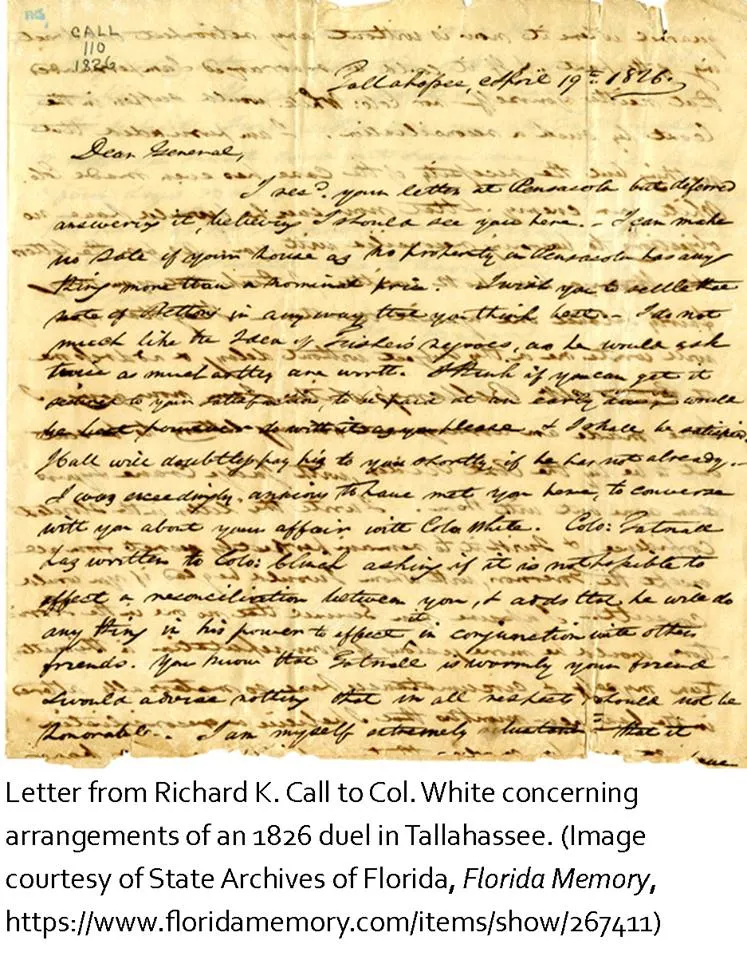 CALL
110
1826
Tallahassee, April 19th 1826.
Dear General,
I recd. your letter at Pensacola but deferred
answering it, believing I should see you here. - I can make
no Sale of your house as no property in Pensacola has any
thing more than a nominal price. I wish you to settle the
note of in any way that you think best. - I do not
much like the Idea of negroes, as he would ask
twice as much as they are worth. I think if you can get it
to your satisfaction, to be paid at an early would
be best, however do with it as you please & I shall be satisfied
Hall will doubtless pay his to you shortly, if he has not already. -
I was exceedingly anxious to have met you here, to converse
with you about your affair with Colo White. Colo: Gatnall
has written to Colo: asking if it is not possible to
effect a reconciliation between you, & adds that he will do
any thing in his power to effect it in conjunction with other
friends. You know that Gatnall is warmly your friend
& would advise nothing that in all respects should not be
Honorable. - I am myself extremely reluctant that it
Letter from Richard K. Call to Col. White concerning
arrangements of an 1826 duel in Tallahassee. (Image
courtesy of State Archives of Florida, Florida Memory,
https://www.floridamemory.com/items/show/267411)